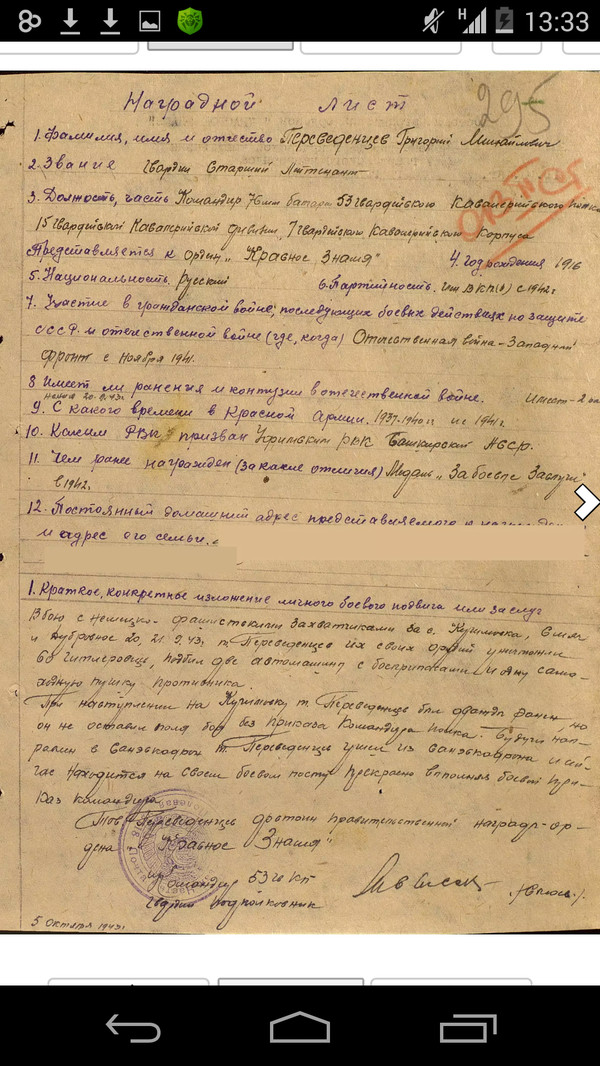 13:33
295
Наградной лист
1. Фамилия, имя и отчество Переведенцев Григорий Михайлович
2. Звание гвардии Старший Лейтенант
3. Должность, часть Командир 76мм батареи 53 гвардейского Кавалерийского
15 гвардейской Кавалерийской дивизии, 7 гвардейского Кавалерийского Корпуса
Представляется к ордену „Красное Знамя" 4. Год рождения 1916
5. Национальность Русский 6. Партийность. член ВКП(б) с 1942г.
7. Участие в гражданской войне, последующих боевых действиях по защите
СССР и отечественной войне (где, когда) Отечественная война - Западный
фронт с Ноября 1941.
8 Имеет ли ранения и контузии в отечественной войне. Имеет - 2
20.9.43г
9. С какого времени в Красной Армии. 1937-1940г и с 1941г.
10. Каким РВК призван Уфимским РВК Башкирской АССР.
11. Чем ранее награжден (за какие отличия) Медаль „За боевые Заслуги"
в 1942г.
12. Постоянный домашний адрес представляемого к
и адрес его семьи.
1. Краткое, конкретное изложение личного боевого подвига или заслуг
В бою с немецко-фашистскими захватчиками за
и Дубровное 20, 21.9.43г т. Переведенцев их своих орудий уничтожил
гитлеровцев, подбил две автомашины с боеприпасами и одну само-
ходную пушку противника.
При наступлении на т. Переведенцев был дважды ранен но
он не оставил поля боя без приказа Командира полка. Будучи нап-
равлен в Санэскадрон т. Переведенцев ушел из санэскадрона и сей-
час находится на своем боевом посту прекрасно выполняя боевой при-
каз командира
Тов. Переведенцев достоин правительственной награды - ор-
дена „Красное Знамя"
Командир 53 гв КП
гвардии подполковник
5 Октября 1943г.